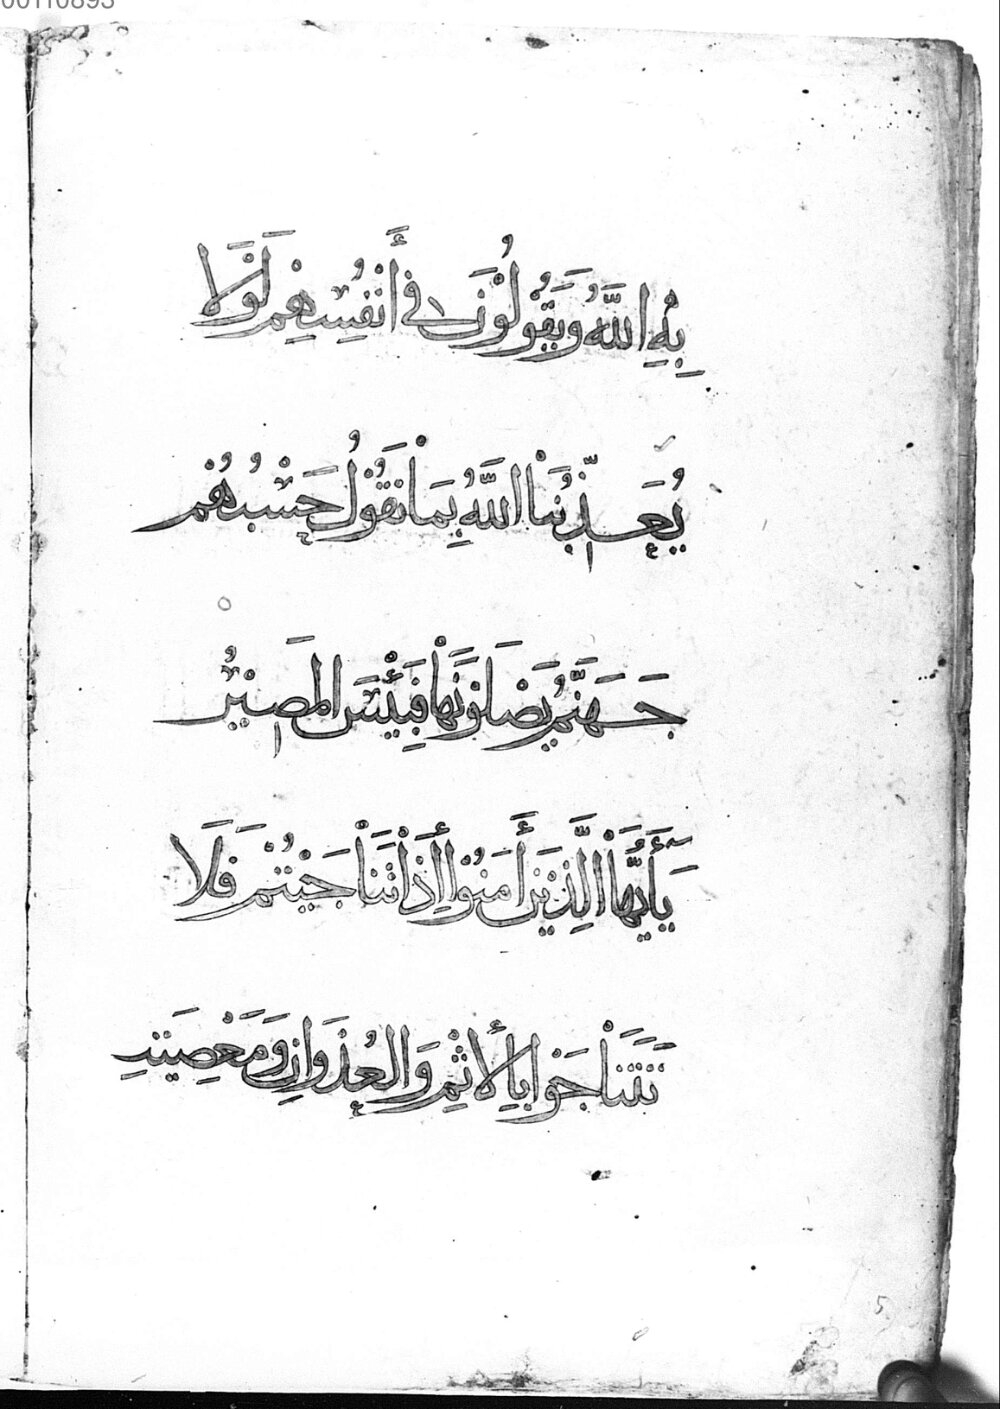 00110893
بِهِ اللَّهُ وَيَقُولُونَ فِي أَنْفُسِهِمْ لَوْلَا
يُعَذِّبُنَا اللَّهُ بِمَا نَقُولُ حَسْبُهُمْ
جَهَنَّمُ يَصْلَوْنَهَا فَبِئْسَ الْمَصِيرُ
يَأَيُّهَا الَّذِينَ أَمَنُوا إِذَا تَنَاجَيْتُمْ فَلَا
تَتَنَاجَوْا بِالْأِثْمِ وَالْعُدْوَانِ وَمَعْصِيَتِ
5